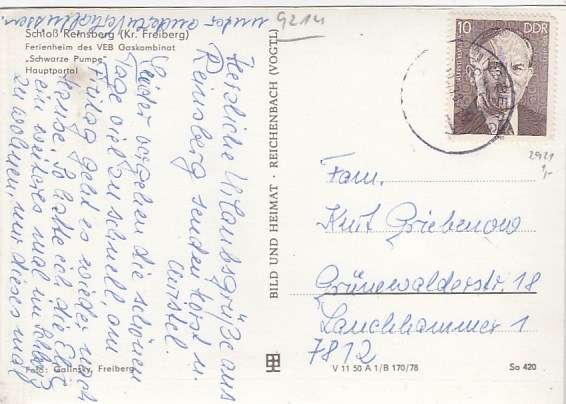 Schloß Reinsberg (Kr. Freiberg)
Ferienheim des VEB Gaskombinat
„Schwarze Pumpe“
Hauptportal
9214
Herzliche Urlaubsgrüße aus
Reinsberg senden Horst u.
Christel.
Leider vergehen die schönen
Tage viel zu schnell, am
Freitag geht es wieder nach
Hause. So hatte ich die Ehre
ein weiteres mal im Schloß
zu wohnen nur dieses mal
unter anderen Verhältnissen
BILD UND HEIMAT · REICHENBACH (VOGTL)
10 DDR
2921
1,-
Fam.
Kurt Griebenow
Grünewalderstr. 18
Lauchhammer 1
7812
Foto: Galinsky, Freiberg
V 11 50 A 1/B 170/78
So 420